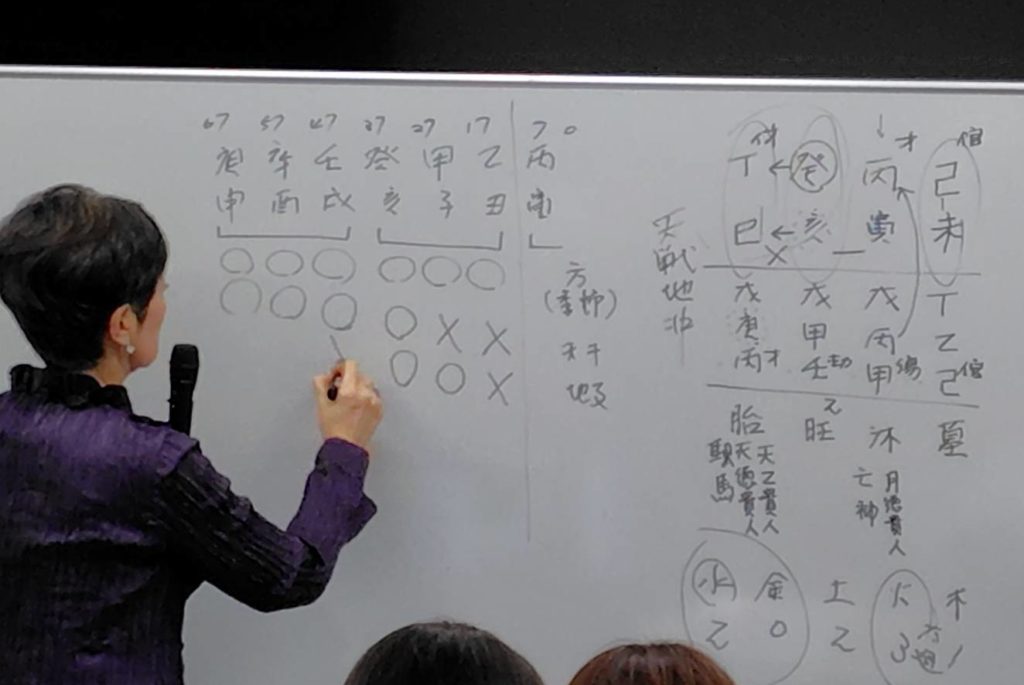 67 57 47 37 27 17 7 0
庚 辛 壬 癸 甲 乙 丙
申 酉 戌 亥 子 丑 寅
○ ○ ○ ○ ○ ○ 方
○ ○ ○ ○ X X
○ ○ X 天干
地支
天戦地冲
才
丁 ← 癸 丙 己
巳 ← 亥 寅 未
X
戊 戊 戊 丁
庚 甲 丙 乙
丙才 壬劫 甲傷 己
胎 旺 沐 墓
駅馬 天徳貴人 天乙貴人 亡神 月徳貴人
水 金 土 火 木
2 0 2 3 1